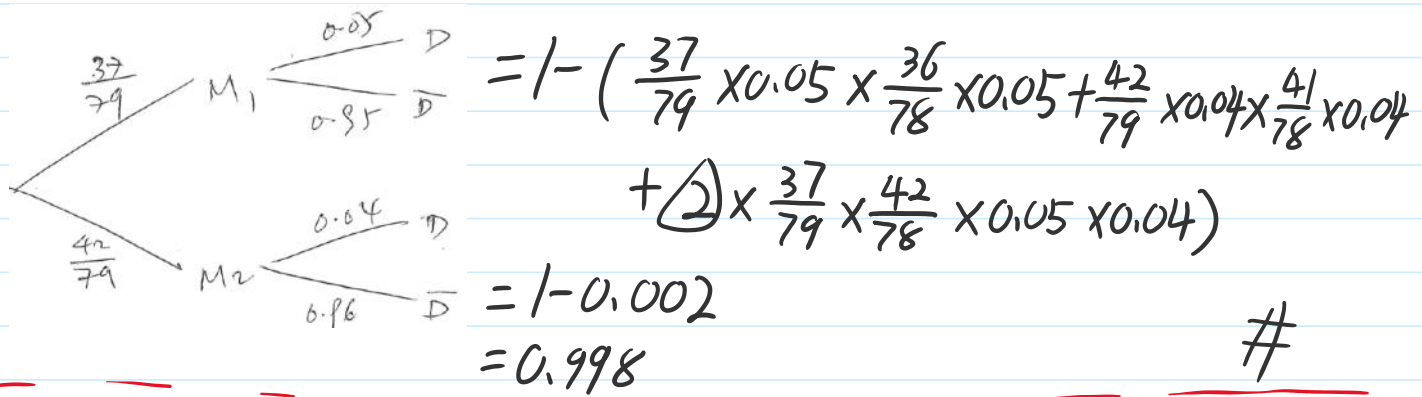 37/79 M₁ 0.05 D
0.95 D̅
42/79 M₂ 0.04 D
0.96 D̅
=1-(37/79 ×0.05 × 36/78 ×0.05+42/79 ×0.04× 41/78 ×0.04
+2× 37/79 × 42/78 ×0.05 ×0.04)
=1-0.002
=0.998
#